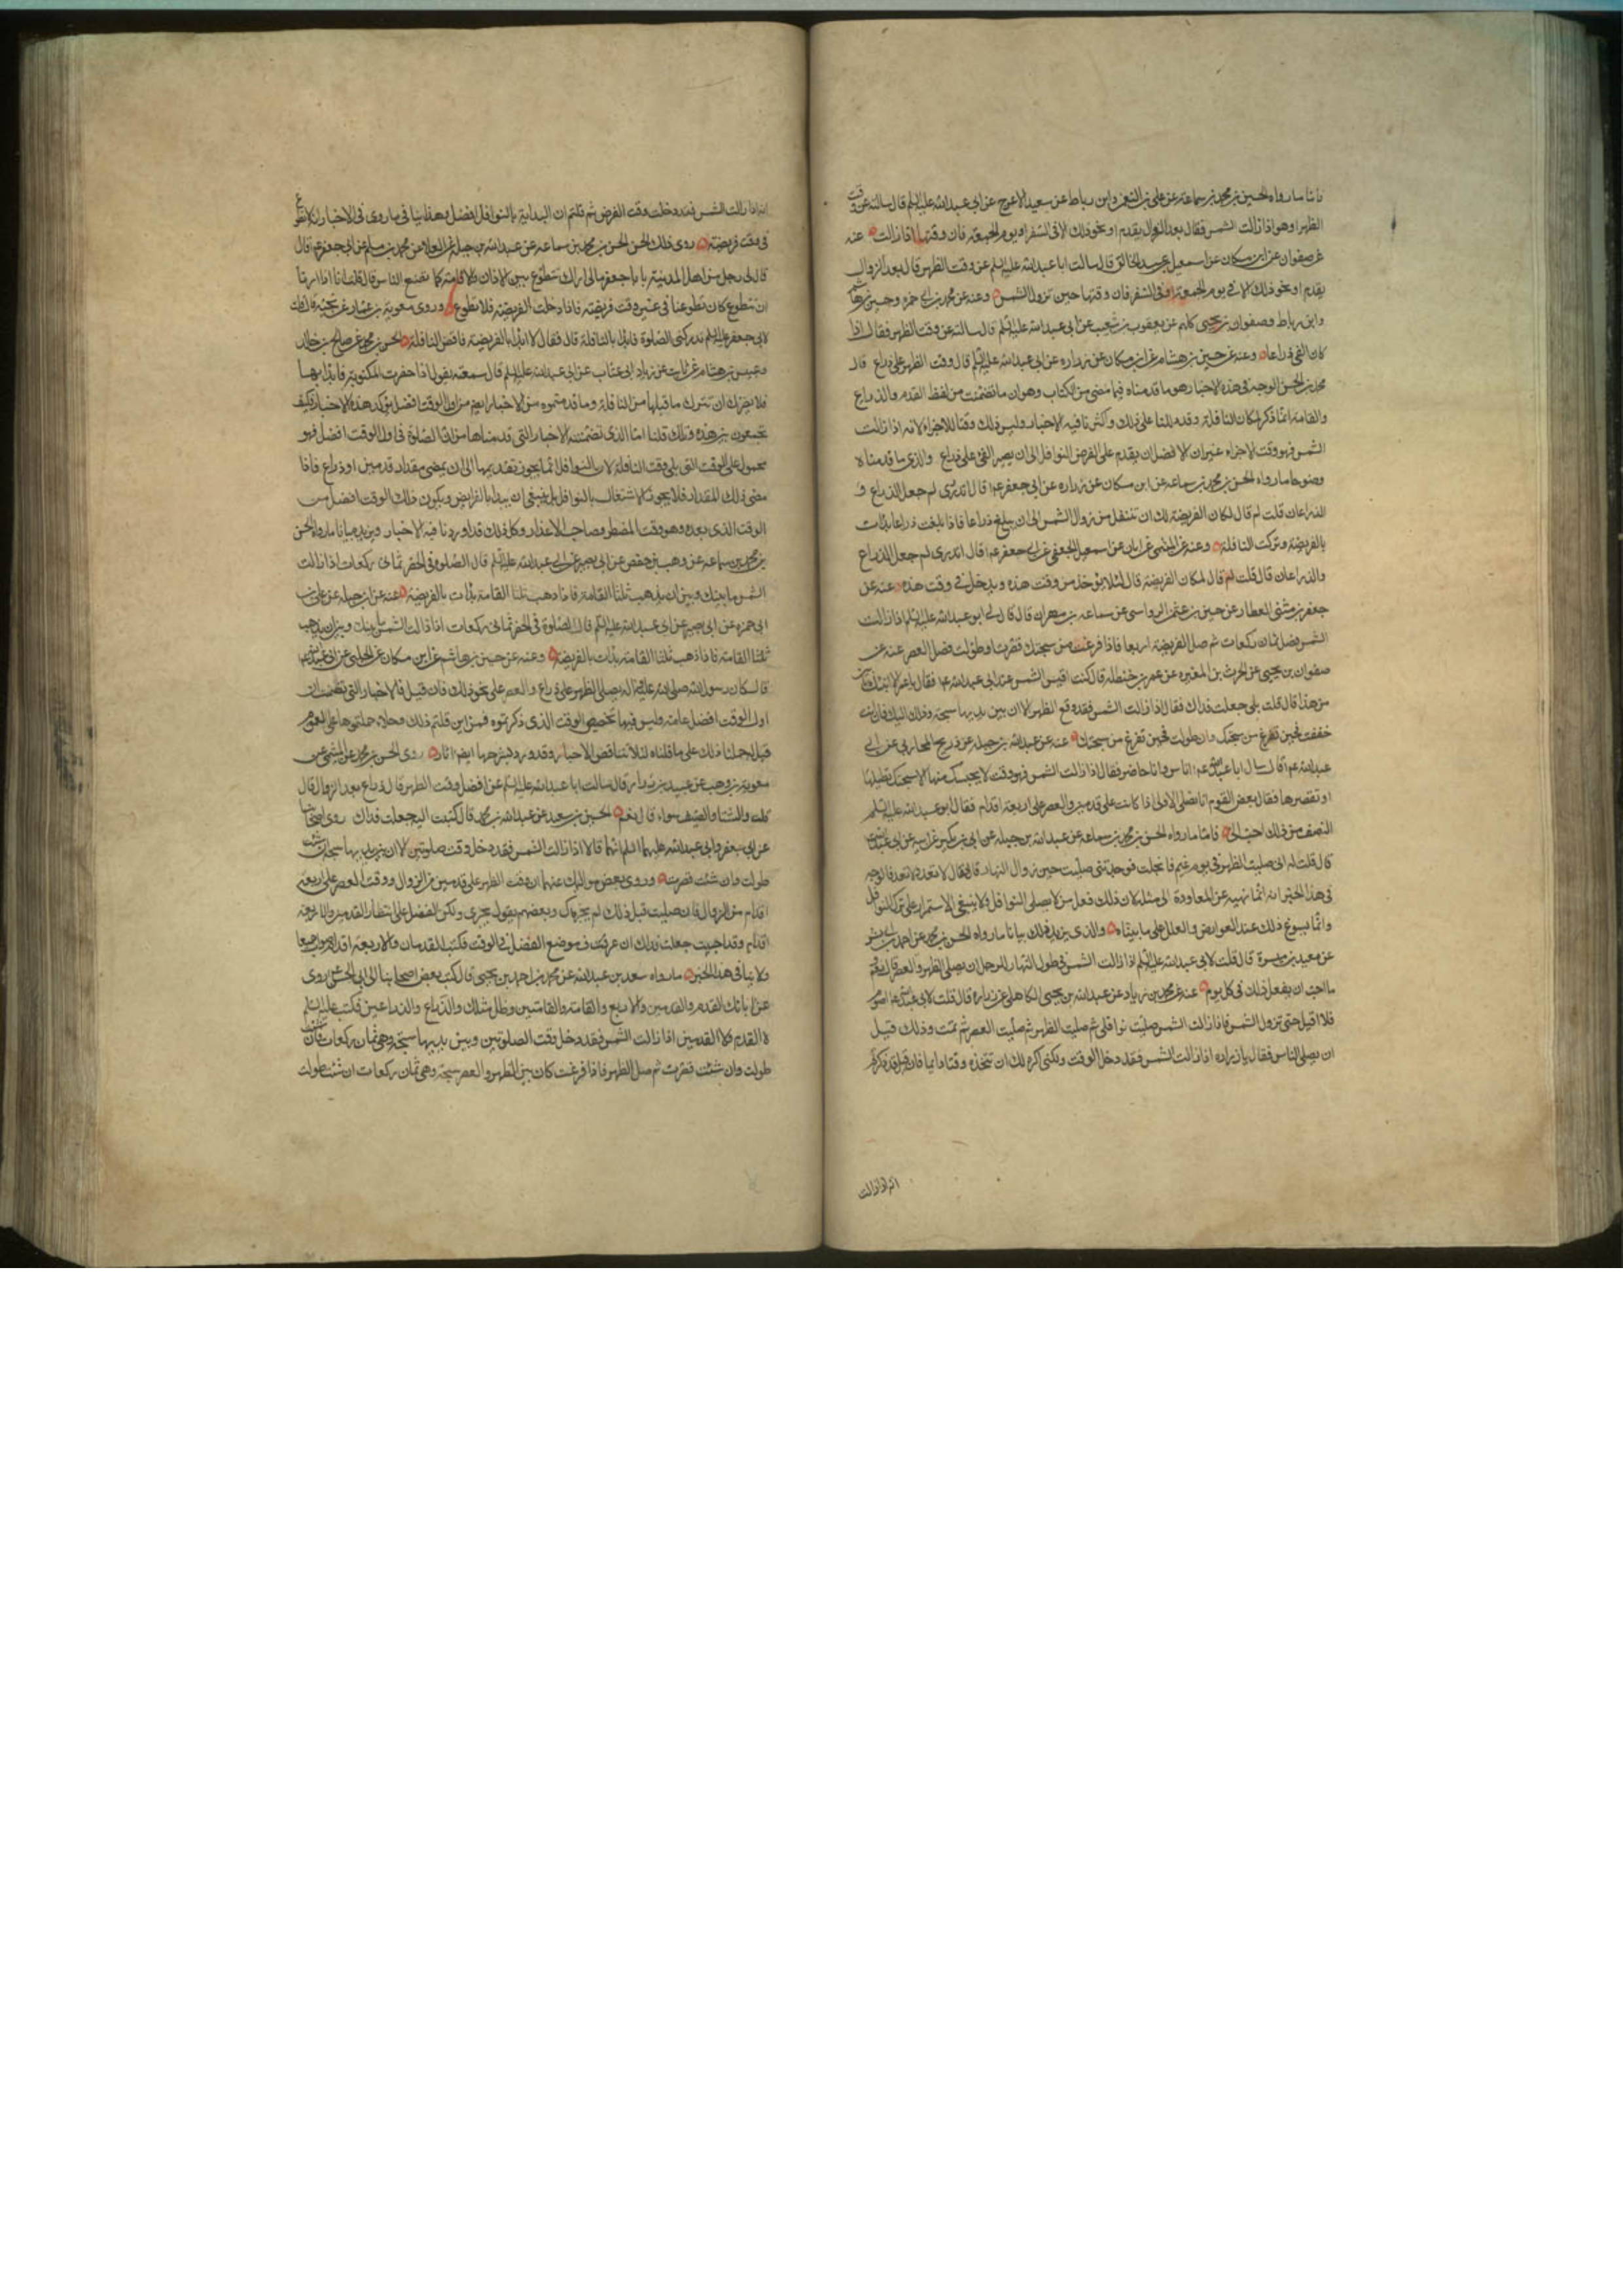 فاما ما رواه الحسن بن محمد بن سماعة عن علي بن النعمن وابن رباط عن سعيد الاعرج عن ابي عبد الله عليه السلم قال سالته عن وقت
الظهر اهو اذا زالت الشمس فقال بعد الزوال بقدم او نحو ذلك الا في السفر او يوم الجمعة فان وقتها اذا زالت عنه
عن صفوان عن ابن مسكان عن اسمعيل بن عبد الخالق قال سالت ابا عبد الله عليه السلم عن وقت الظهر قال بعد الزوال
بقدم او نحو ذلك الا في يوم الجمعة او في السفر فان وقتها حين تزول الشمس وعنه عن محمد بن ابي حمزه وحسين بن هاشم
وابن رباط وصفوان بن يحيى كلهم عن يعقوب بن شعيب عن ابي عبد الله عليه السلم قال سالته عن وقت الظهر فقال اذا
كان الفئ ذراعا وعنه عن حسين بن هشام عن ابن مسكان عن زراره عن ابي عبد الله عليه السلم قال وقت الظهر على ذراع قال
محمد بن الحسن الوجه في هذه الاخبار هو ما قدمناه فيما مضى من الكتاب وهو ان ما تضمنت من لفظ القدم والذراع
والقامة انما ذكر لمكان النافلة وقد دللنا على ذلك واكثرنا فيه الاخبار وليس ذلك وقتا للاجزاء لانه اذا زالت
الشمس فهو وقت الاجزاء غير ان الافضل ان يقدم على الفرض النوافل الى ان يصير الفئ على ذراع والذي ما قدمناه
وضوحا ما رواه الحسن بن محمد بن سماعه عن ابن مسكان عن زراره عن ابي جعفر عم قال اتدري لم جعل الذراع و
الذراعان قلت لم قال لمكان الفريضة لك ان تتنفل من زوال الشمس الى ان يبلغ ذراعا فاذا بلغت ذراعا بدات
بالفريضة وتركت النافلة وعنه عن الميثمي عن ابان عن اسمعيل الجعفي عن ابي جعفر عم قال اتدري لم جعل الذراع
والذراعان قال قلت لم قال لمكان الفريضة قال لئلا يؤخذ من وقت هذه ويدخل في وقت هذه عنه عن
جعفر بن مثنى العطار عن حسين بن عثمن الرواسي عن سماعه بن مهران قال قال لي ابو عبد الله عليه السلم اذا زالت
الشمس فصل ثمان ركعات ثم صل الفريضة اربعا فاذا فرغت من سبحتك قصرت او طولت فصل العصر عنه عن
صفوان بن يحيى عن الحرث بن المغيره عن عمر بن حنظله قال كنت اقيس الشمس عند ابي عبد الله عم فقال يا عمر الا انبئك بابين
من هذا قال قلت بلى جعلت فداك فقال اذا زالت الشمس فقد وقع الظهر الا ان بين يديها سبحة وذلك اليك فان انت
خففت فحين تفرغ من سبحتك وان طولت فحين تفرغ من سبحتك عنه عن عبد الله بن جبله عن ذريح المحاربي عن ابي
عبد الله عم قال سال ابا عبد الله عم اناس وانا حاضر فقال اذا زالت الشمس فهو وقت لا يحبسك منها الا سبحتك تطيلها
او تقصرها فقال بعض القوم انا نصلي الاولى اذا كانت على قدمين والعصر على اربعة اقدام فقال ابو عبد الله عليه السلم
النصف من ذلك احب الي فاما ما رواه الحسن بن محمد بن سماعه عن عبد الله بن جبله عن ابي بن بكير عن ابيه عن ابي عبد الله
قال قلت له اني صليت الظهر في يوم غيم فانجلت فوجدتني صليت حين زوال النهار قال فقال لا تعد ولا تعد فالوجه
في هذا الخبر انه انما نهيه عن المعاودة الى مثله لان ذلك فعل من لا يصلي النوافل ولا ينبغي الاستمرار على ترك النوافل
وانما يسوغ ذلك عند العوارض والعلل على ما بيناه والذي يزيد ذلك بيانا ما رواه الحسن بن محمد عن احمد بن ابي بشر
عن معبد بن ميسرة قال قلت لابي عبد الله عليه السلم اذا زالت الشمس في طول النهار للرجل ان يصلي الظهر والعصر قال نعم و
ما احب ان يفعل ذلك في كل يوم عنه عن محمد بن زياد عن عبد الله بن يحيى الكاهلي عن زراره قال قلت لابي عبد الله عم اصوم
فلا اقيل حتى تزول الشمس فاذا زالت الشمس صليت نوافلي ثم صليت الظهر ثم صليت العصر ثم نمت وذلك قبل
ان يصلي الناس فقال يا زراره اذا زالت الشمس فقد دخل الوقت ولكني اكره لك ان تتخذه وقتا دايما فان قيل قد ذكرتم
انه اذا زالت
انه اذا زالت الشمس فقد دخل وقت الفرض ثم قلتم ان البداية بالنوافل افضل وهذا ينافي ما روي في الاخبار ان لا تطوع
في وقت فريضة روى ذلك الحسن بن محمد بن سماعه عن عبد الله بن جبلة عن العلا عن محمد بن مسلم عن ابي جعفر عم قال
قال لي رجل من اهل المدينة يا با جعفر ما لي اراك تتطوع بين الاذان والاقامة كما يصنع الناس قال قلت انا اذا اردنا
ان نتطوع كان تطوعنا في غير وقت فريضة فاذا دخلت الفريضة فلا تطوع وروى معوية بن عمار عن نجيه قال قلت
لابي جعفر عليه السلم تدركني الصلوة فابدا بالنافلة قال فقال لا ابدا بالفريضة فاقض النافلة الحسن بن محمد عن صالح بن خالد
وعبيس بن هشام عن ثابت عن زياد ابي عتاب عن ابي عبد الله عليه السلم قال سمعته يقول اذا حضرت المكتوبة فابدا بها
فلا يضرك ان تترك ما قبلها من النافلة وما قدمتموه من الاخبار ايضا من ان اول الوقت افضل يؤكد هذه الاخبار فكيف
تجمعون بين هذه وتلك قلنا اما الذي تضمنته الاخبار التي قدمناها من ان الصلوة في اول الوقت افضل فهو
محمول على الوقت التي يلي وقت النافلة لان النوافل انما يجوز تقديمها الى ان يمضي مقدار قدمين او ذراع فاذا
مضى ذلك المقدار فلا يجوز الاشتغال بالنوافل بل ينبغي ان يبدا بالفرايض ويكون ذلك الوقت افضل من
الوقت الذي بعده وهو وقت المضطر وصاحب الاعذار وكل ذلك قد اوردنا فيه الاخبار ويزيده بيانا ما رواه الحسن
بن محمد بن سماعه عن وهيب بن حفص عن ابي بصير عن ابي عبد الله عليه السلم قال الصلوة في الحضر ثماني ركعات اذا زالت
الشمس ما بينك وبين ان يذهب ثلثا القامة فاذا ذهب ثلثا القامة بدات بالفريضة عنه عن ابن جبله عن علي بن
ابي حمزه عن ابي بصير عن ابي عبد الله عليه السلم قال الصلوة في الحضر ثماني ركعات اذا زالت الشمس ما بينك وبين ان يذهب
ثلثا القامة فاذا ذهب ثلثا القامة بدات بالفريضة وعنه عن حسين بن هاشم عن ابن مسكان عن الحلبي عن ابي عبد الله عم
قال كان رسول الله صلى الله عليه واله يصلي الظهر على ذراع والعصر على نحو ذلك فان قيل فالاخبار التي تضمنت ان
اول الوقت افضل عامة وليس فيها تخصيص الوقت الذي ذكرتموه فمن اين قلتم ذلك وهلا حملتموها على العموم
قيل له حملنا ذلك على ما قلناه لئلا تتناقض الاخبار وقد ورد بشرحها ايضا اثار روى الحسن بن محمد عن الميثمي عن
معوية بن وهب عن عبيد بن زراره قال سالت ابا عبد الله عليه السلم عن افضل وقت الظهر قال ذراع بعد الزوال قال
قلت والشتا والصيف سواء قال نعم الحسين بن سعيد عن عبد الله بن محمد قال كتبت اليه جعلت فداك روى اصحابنا
عن ابي جعفر وابي عبد الله عليهما السلم انهما قالا اذا زالت الشمس فقد دخل وقت صلوتين الا ان بين يديها سبحة ان شئت
طولت وان شئت قصرت وروى بعض مواليك عنهما ان وقت الظهر على قدمين من الزوال ووقت العصر على اربعة
اقدام من الزوال فان صليت قبل ذلك لم يجزك وبعضهم يقول يجزي ولكن الفضل على انتظار القدمين والاربعة
اقدام وقد احببت جعلت فداك ان اعرف موضع الفضل في الوقت فكتب القدمان والاربعة اقدام صواب جميعا
ولا ينافي هذا الخبر ما رواه سعد بن عبد الله عن محمد بن احمد بن يحيى قال كتب بعض اصحابنا الى ابي الحسن روي
عن ابائك القدم والقدمين والاربع والقامة والقامتين وظل مثلك والذراع والذراعين فكتب عليه السلم
لا القدم ولا القدمين اذا زالت الشمس فقد دخل وقت الصلوتين وبين يديها سبحة وهي ثمان ركعات فان شئت
طولت وان شئت قصرت ثم صل الظهر فاذا فرغت كان بين الظهر والعصر سبحة وهي ثمان ركعات ان شئت طولت